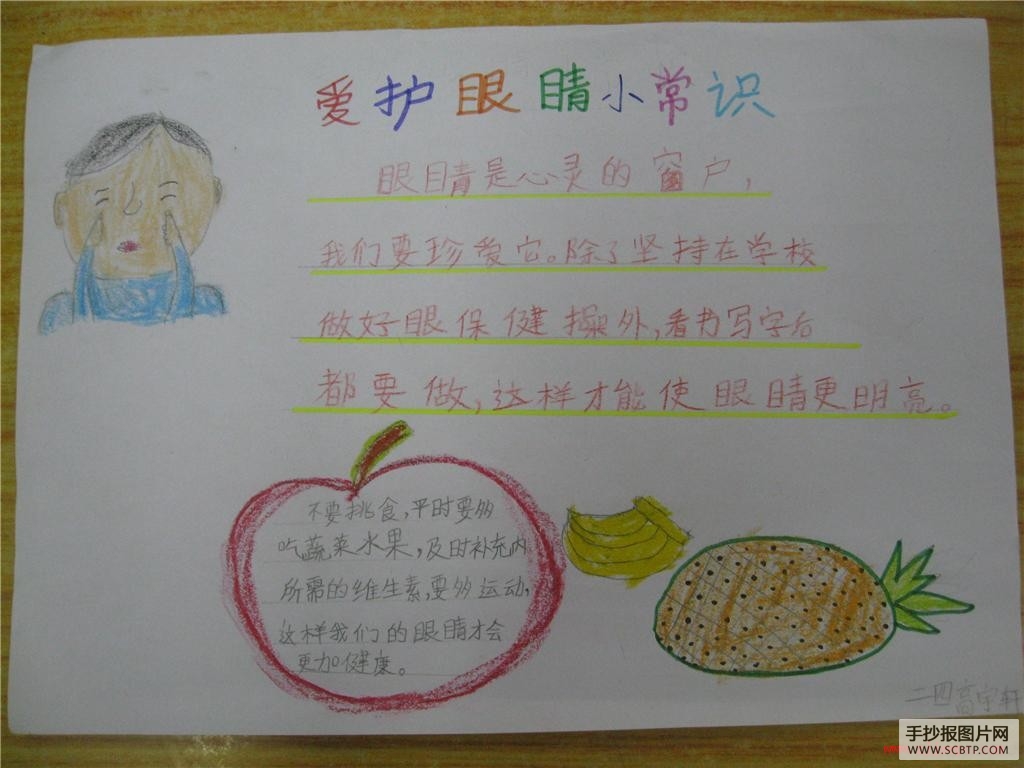 爱护眼睛小常识
眼睛是心灵的窗户,
我们要珍爱它。除了坚持在学校
做好眼保健操外,看书写字后
都要做,这样才能使眼睛更明亮。
不要挑食,平时要多
吃蔬菜水果,及时补充内
所需的维生素,要多运动,
这样我们的眼睛才会
更加健康。
二四高宇轩
手抄报图片网
WWW.SCBTP.COM